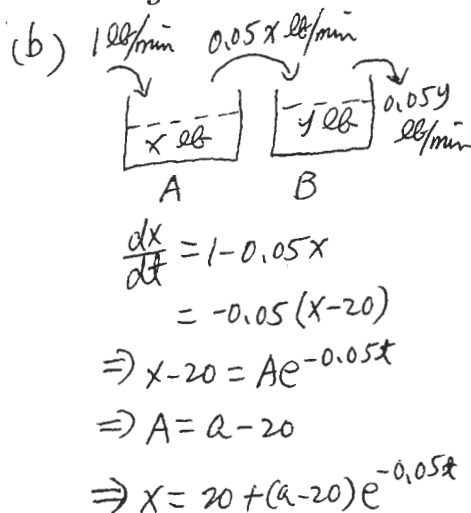 (b) 1 lb/min 0.05x lb/min
x lb y lb 0.05y lb/min
A B
dx/dt = 1-0.05x
= -0.05(x-20)
⇒ x-20 = Ae^{-0.05t}
⇒ A = a-20
⇒ x = 20+(a-20)e^{-0.05t}